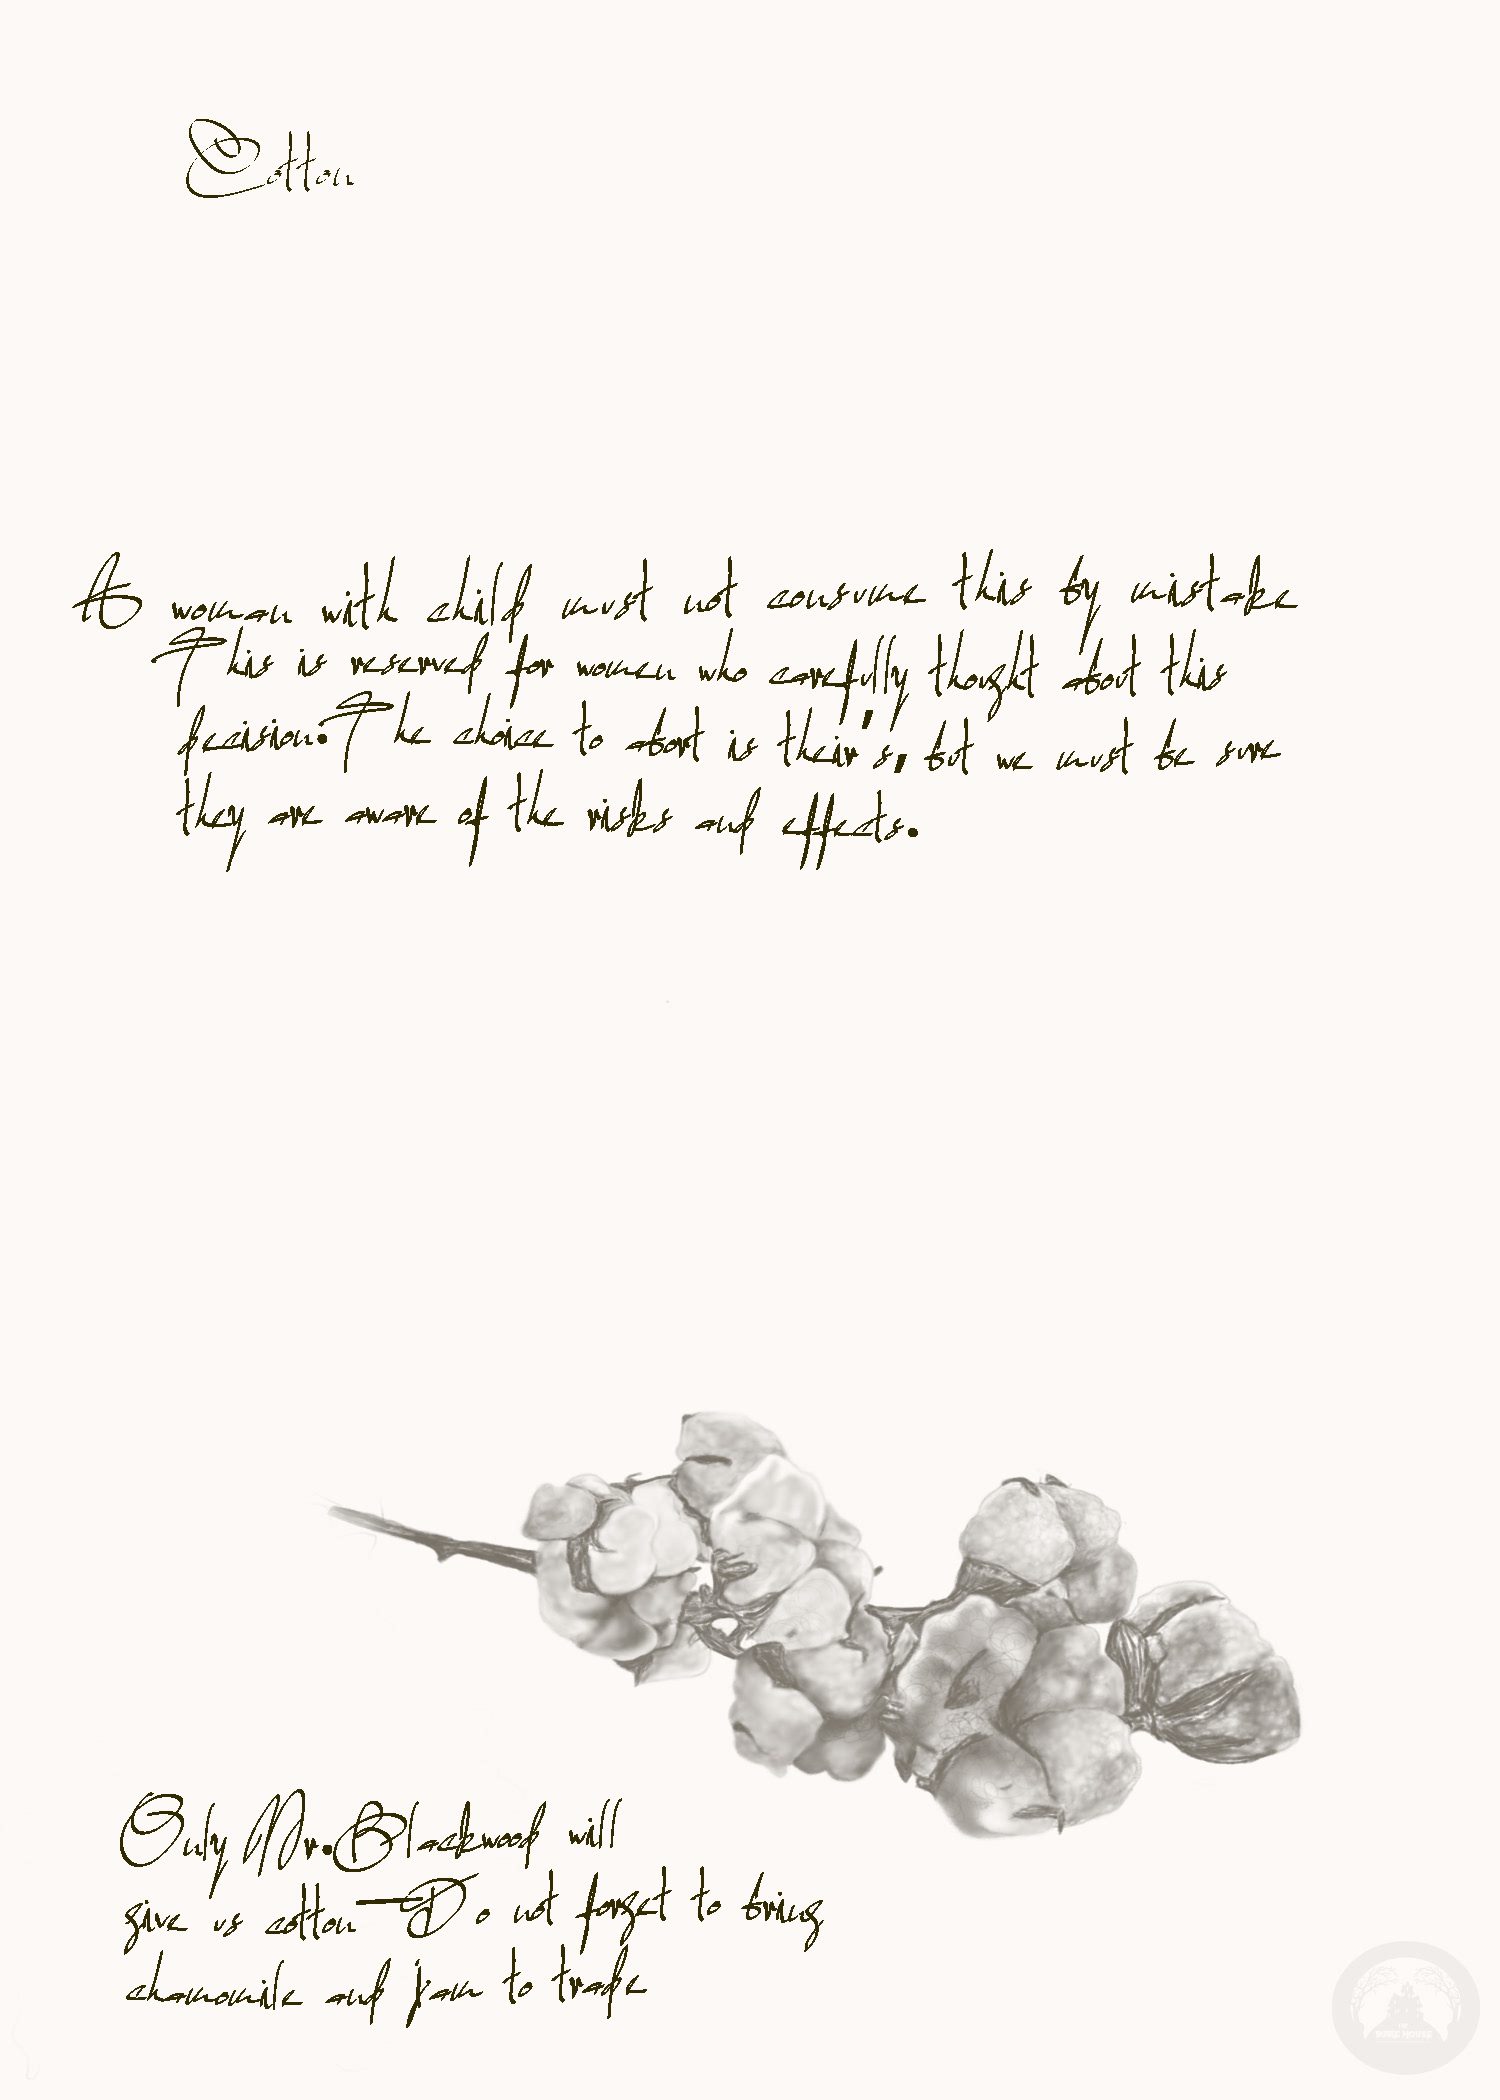 Cotton
A woman with child must not consume this by mistake
This is reserved for women who carefully thought about this
decision. The choice to abort is their's, but we must be sure
they are aware of the risks and effects.
Only Mr. Blackwood will
give us cotton - Do not forget to bring
chamomile and jam to trade